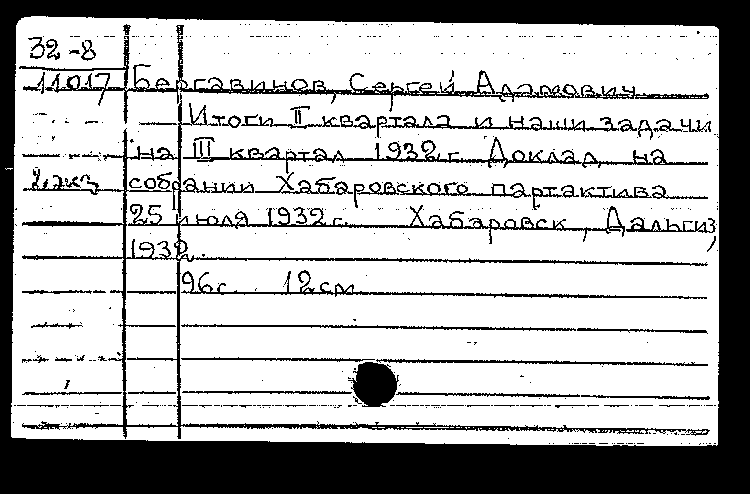 32-8
11017 Бергавинов, Сергей Адамович
Итоги II квартала и наши задачи
на III квартал 1932 г. Доклад на
2 экз собрании Хабаровского партактива
25 июля 1932 г. Хабаровск, Дальгиз,
1932.
96 с. 12 см